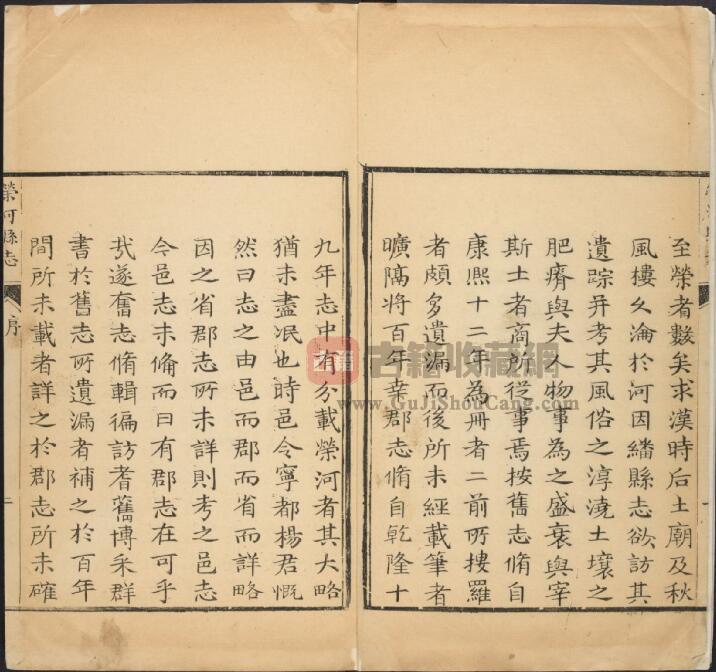 至榮者數矣求漢時后土廟及秋
風樓久淪於河因繙縣志欲訪其
遺踪并考其風俗之淳澆土壤之
肥瘠與夫人物事為之盛衰與宰
斯土者商所從事焉按舊志脩自
康熙十二年為冊者二前所摟羅
者頗多遺漏而後所未經載筆者
曠隔將百年幸郡志脩自乾隆十
九年志中有分載榮河者其大略
猶未盡泯也時邑令寧都楊君慨
然曰志之由邑而郡而省而詳略
因之省郡志所未詳則考之邑志
今邑志未脩而曰有郡志在可乎
㢤遂奮志脩輯徧訪耆舊博采群
書於舊志所遺漏者補之於百年
間所未載者詳之於郡志所未確
榮河縣志
序
一
古籍收藏網
www.GuJiShouCang.com